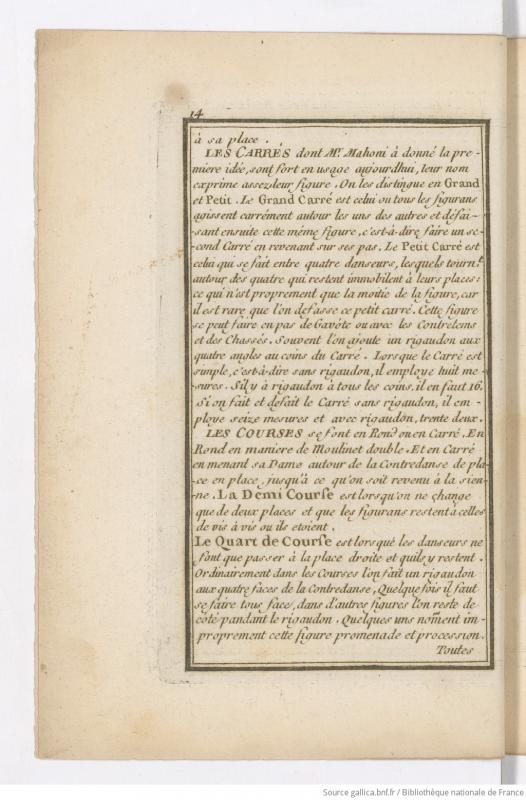 14
à sa place.
LES CARRÉS dont Mr. Mahoni à donné la pre-
miere idée, sont fort en usage aujourdhui, leur nom
exprime assez leur figure. On les distingue en Grand
et Petit. Le Grand Carré est celui ou tous les figurans
agissent carrément autour les uns des autres et défai-
sant ensuite cette même figure, c'est-à-dire faire un se-
cond Carré en revenant sur ses pas. Le Petit Carré est
celui qui se fait entre quatre danseurs, lesquels tournt.
autour des quatre qui restent immobilent à leurs places:
ce qui n'est proprement que la moitie de la figure, car
il est rare que l'on defasse ce petit carré. Cette figure
se peut faire en pas de Gavóte ou avec les Contretems
et des Chassés. Souvent l'on ajoute un rigaudon aux
quatre angles au coins du Carré. Lorsque le Carré est
simple, c'est-à-dire sans rigaudon, il employe huit me-
sures. S'il y à rigaudon à tous les coins, il en faut 16.
Si on fait et defait le Carré sans rigaudon, il em-
ploye seize mesures et avec rigaudon, trente deux.
LES COURSES se font en Rond ou en Carré. En
Rond en maniere de Moulinet double. Et en Carré
en menant sa Dame autour de la Contredanse de pla-
ce en place, jusqu'à ce qu'on soit revenu à la sien-
ne. La Demi Course est lorsqu'on ne change
que de deux places et que les figurans restent à celles
de vis à vis ou ils etoient.
Le Quart de Course est lorsqué les danseurs ne
font que passer à la place droite et quils y restent.
Ordinairement dans les Courses l'on fait un rigaudon
aux quatre faces de la Contredanse, Quelque fois il faut
se faire tous face, dans d'autres figures l'on reste de
côté pandant le rigaudon. Quelques uns noment im-
proprement cette figure promenade et procession.
Toutes
Source gallica.bnf.fr / Bibliothèque nationale de France